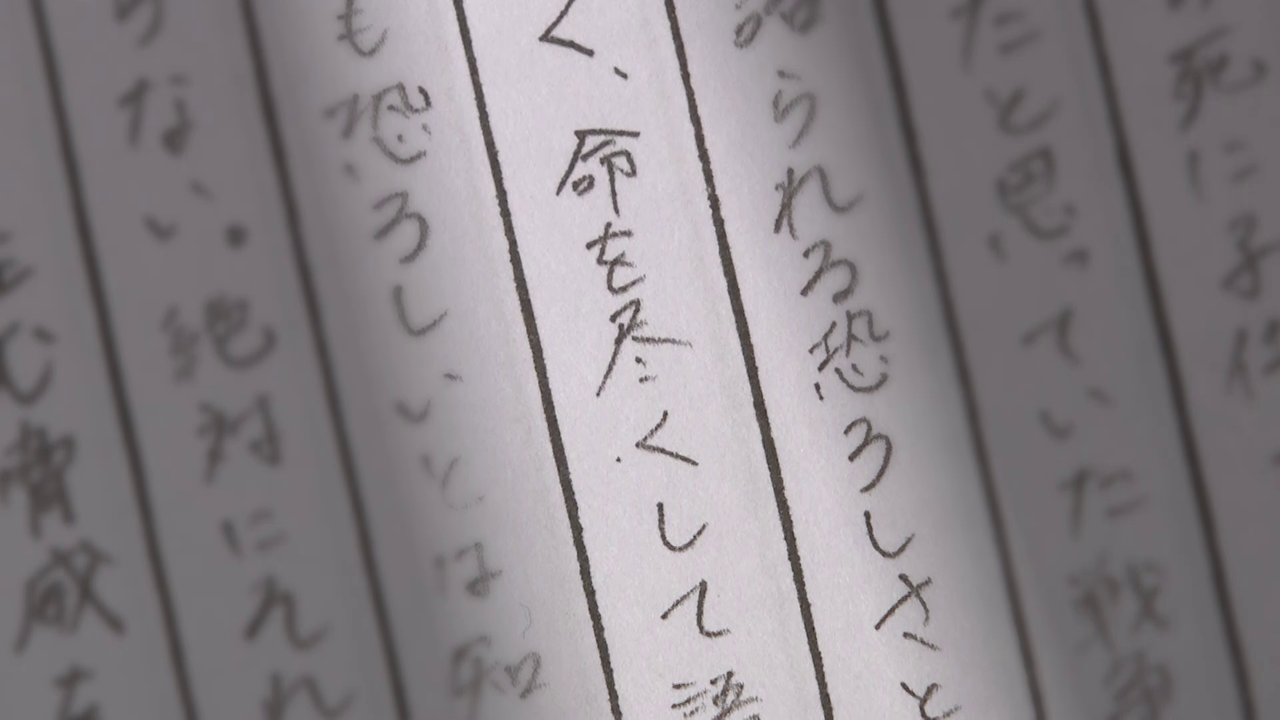 死に子
たと思っていた戦争
語られる恐ろしさと
く、命を尽くして語
も恐ろしいとは知
らない。絶対に忘れ
脅威を